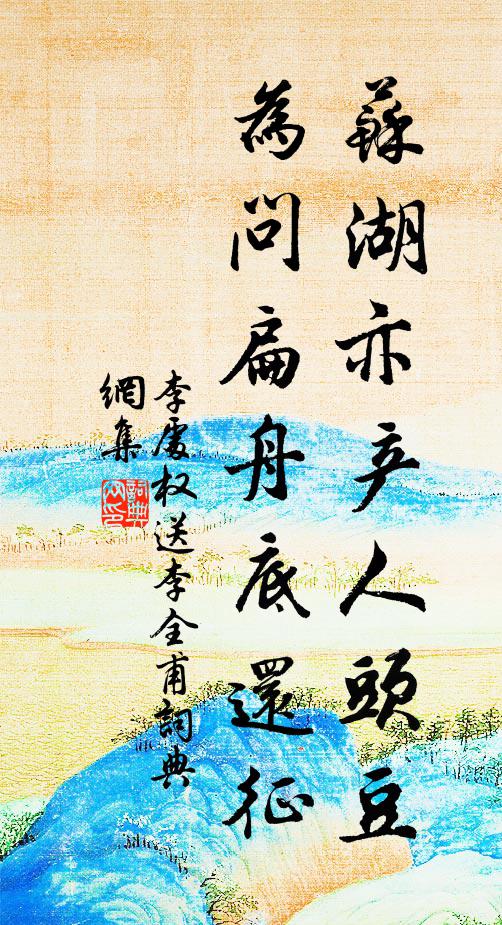 蘇湖亦产人頭豆
為問扁舟底還征
李處权送李全甫詞典
網集
詞典